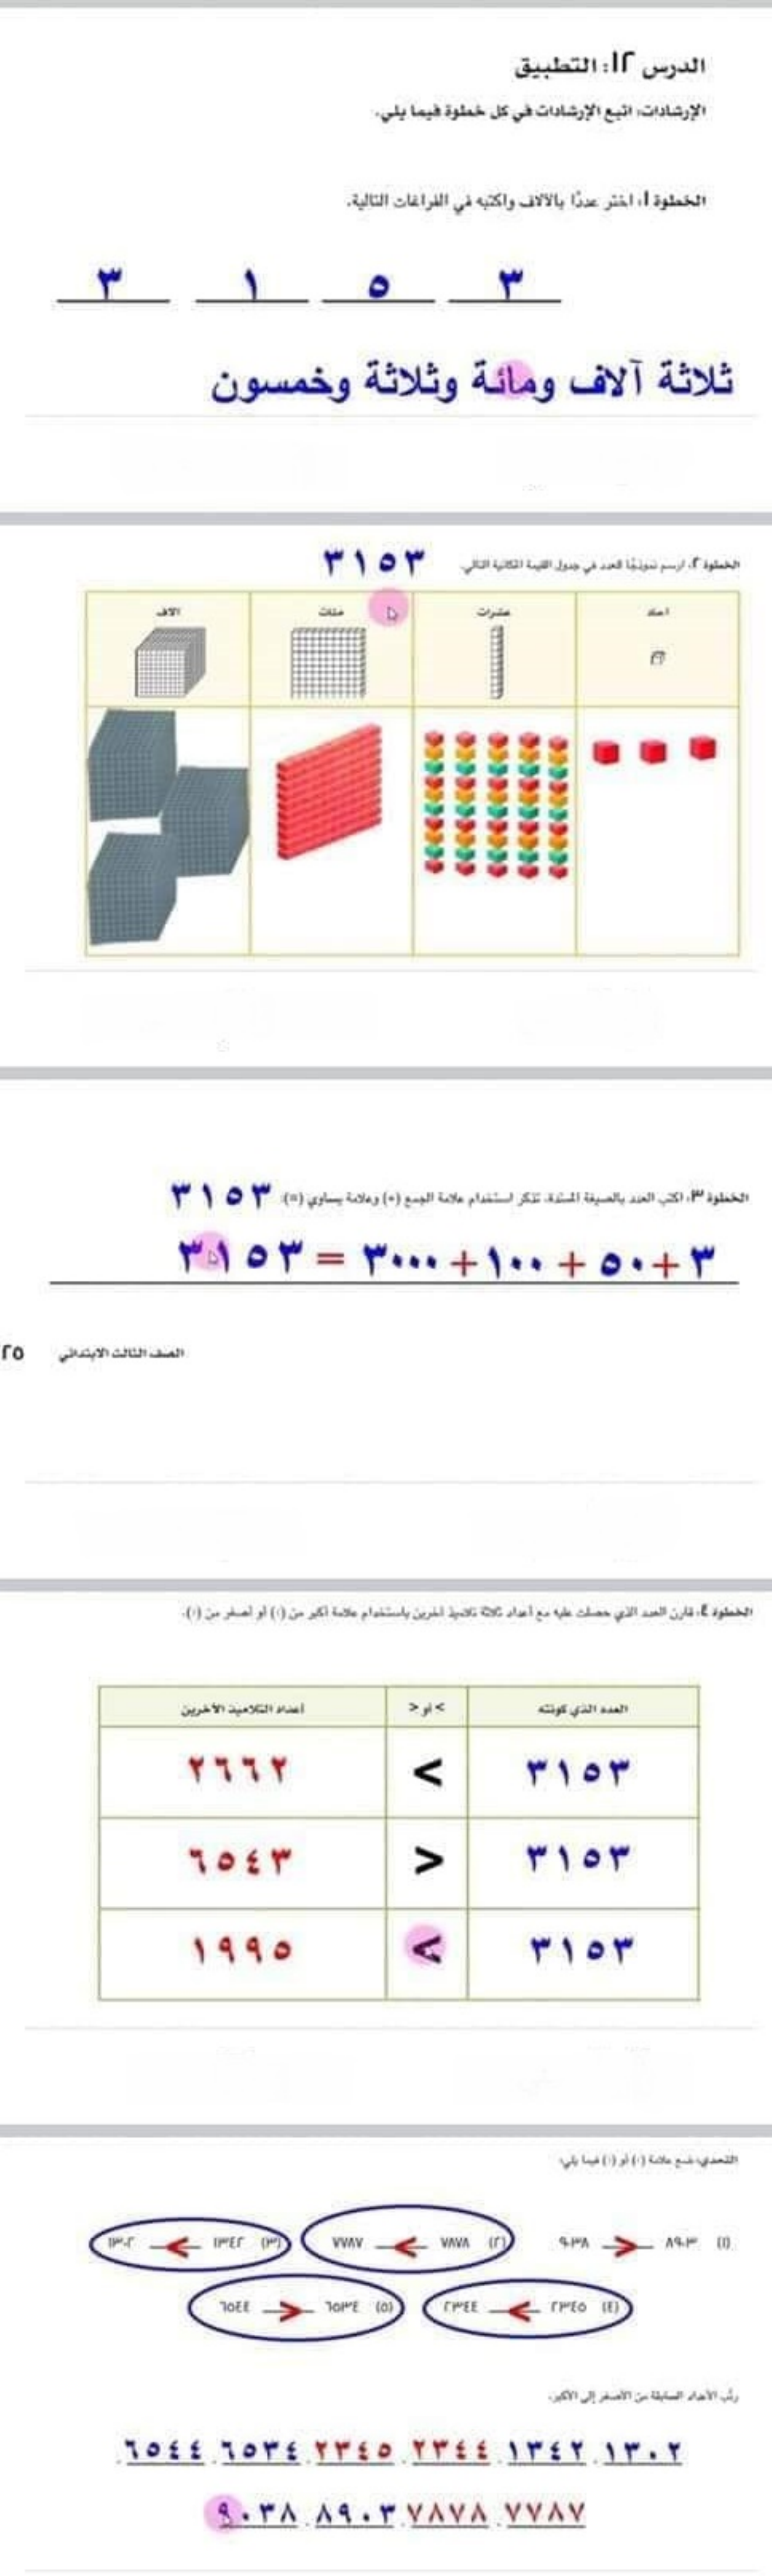 الدرس ١٢: التطبيق
الإرشادات: اتبع الإرشادات في كل خطوة فيما يلي.
الخطوة ١: اختر عددًا بالآلاف واكتبه في الفراغات التالية.
٣ ١ ٥ ٣
ثلاثة آلاف ومائة وثلاثة وخمسون
الخطوة ٢: ارسم نموذجًا للعدد في جدول القيمة المكانية التالي. ٣١٥٣
آحاد عشرات مئات آلاف
الخطوة ٣: اكتب العدد بالصيغة الممتدة. تذكر استخدام علامة الجمع (+) وعلامة يساوي (=): ٣١٥٣
٣١٥٣ = ٣٠٠٠ + ١٠٠ + ٥٠ + ٣
الصف الثالث الابتدائي ٢٥
الخطوة ٤: قارن العدد الذي حصلت عليه مع أعداد ثلاثة تلاميذ آخرين باستخدام علامة أكبر من () أو أصغر من ().
العدد الذي كونته > أو < أعداد التلاميذ الآخرين
٣١٥٣ < ٢٦٦٢
٣١٥٣ > ٦٥٤٣
٣١٥٣ < ١٩٩٥
التحدي: ضع علامة () أو () فيما يلي:
(١) ٨٩٠٣ > ٩٠٣٨ (٢) ٧٨٧٨ < ٧٧٨٧ (٣) ١٣٤٢ < ١٣٠٢
(٤) ٢٣٤٥ < ٢٣٤٤ (٥) ٦٥٣٤ > ٦٥٤٤
رتب الأعداد السابقة من الأصغر إلى الأكبر.
١٣٠٢ . ١٣٤٢ . ٢٣٤٤ . ٢٣٤٥ . ٦٥٣٤ . ٦٥٤٤ .
٧٧٨٧ . ٧٨٧٨ . ٨٩٠٣ . ٩٠٣٨